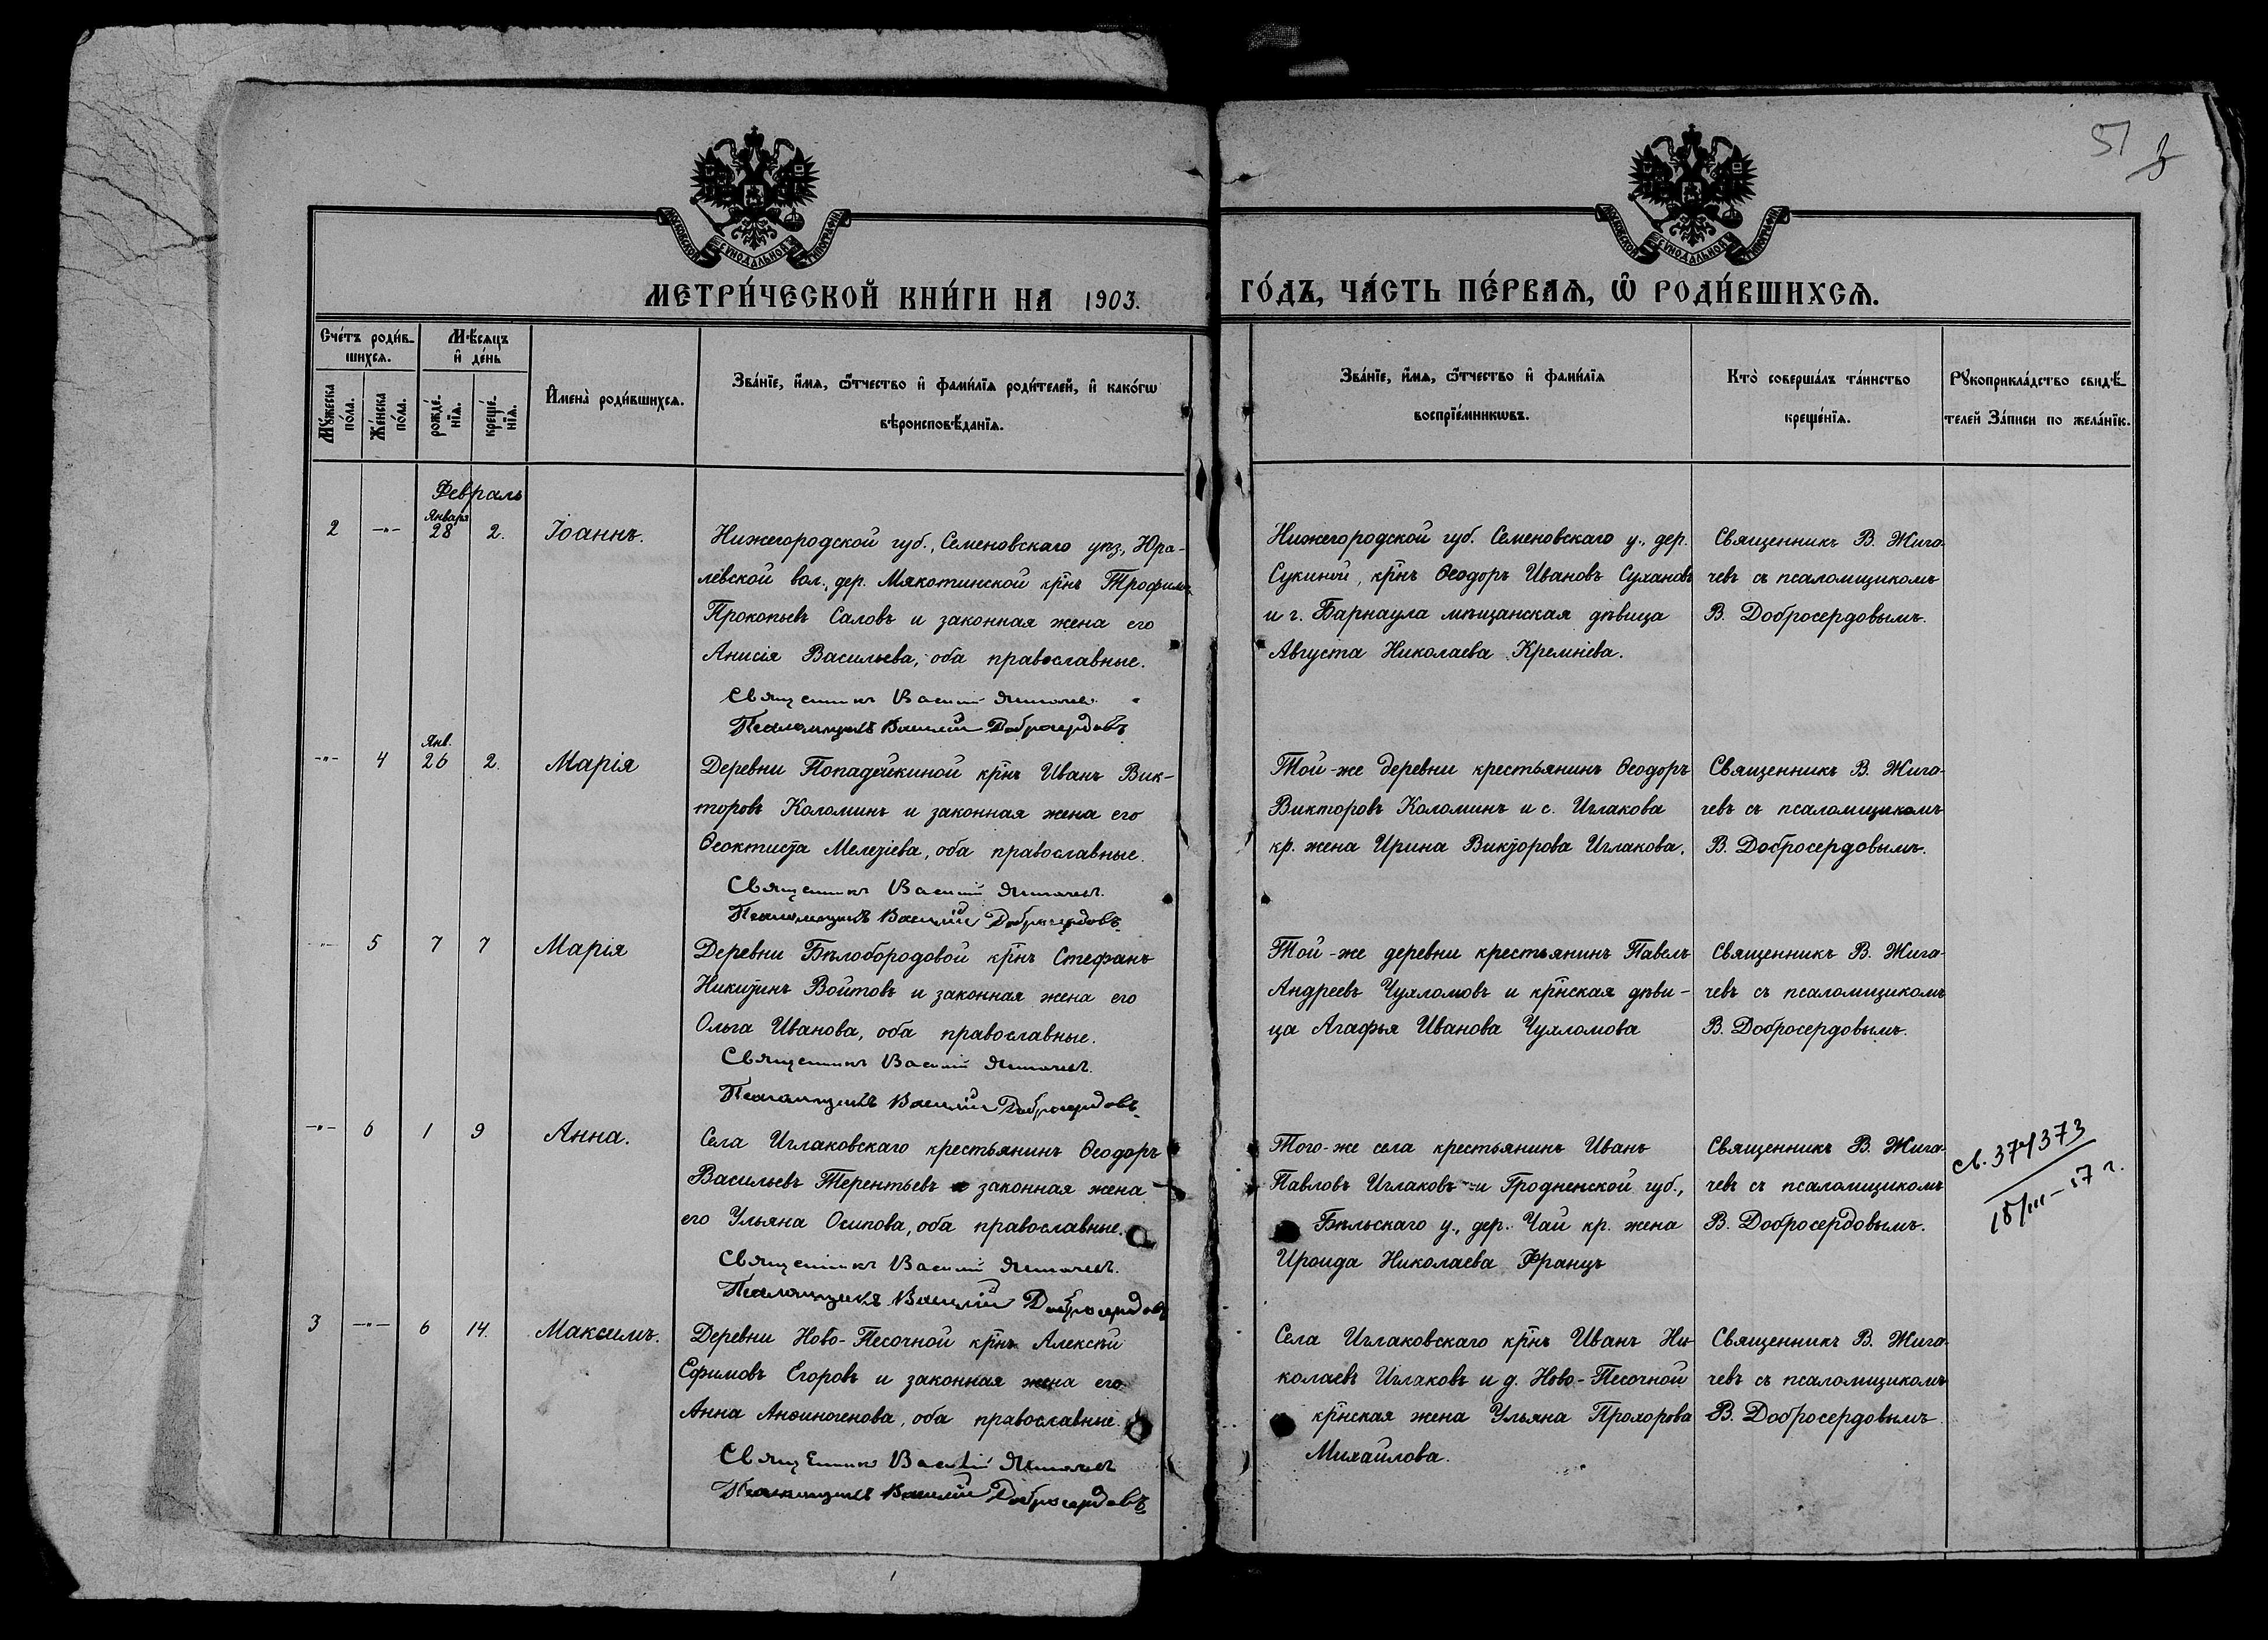 51 3
МОСКОВСКОЙ СѴНОДАЛЬНОЙ ТИПОГРАФІИ
МОСКОВСКОЙ СѴНОДАЛЬНОЙ ТИПОГРАФІИ
МЕТРИ́ЧЕСКОЙ КНИ́ГИ НА 1903. ГО́ДЪ, ЧА́СТЬ ПЕ́РВАѦ, Ѿ РОДИ́ВШИХСѦ.
Сче́тъ роди́в-
шихсѧ.
Мѣ́сѧцъ
и҆ де́нь
Мꙋ́жеска по́ла.
Же́нска по́ла.
рожде́-нїѧ.
креще́-нїѧ.
И҆мена̀ роди́вшихсѧ.
Зва́нїе, и҆́мѧ, ѻ҆́тчество и҆ фамѝлїѧ роди́телей, и҆ како́гѡ
вѣроисповѣ́данїѧ.
Зва́нїе, и҆́мѧ, ѻ҆́тчество и҆ фами́лїѧ
воспрїе́мникѡвъ.
Кто̀ соверша́лъ та́инство
креще́нїѧ.
Рꙋкоприкла́дство свидѣ́-
телей за́писи по жела́нїю.
Февраль
2 -„- Января 28 2. Іоаннъ.
Нижегородской губ., Семеновскаго упз., Юра-
левской вол., дер. Мякотинской кр̄нъ Трофимъ
Прокопьевъ Саловъ и законная жена его
Анисія Васильева, оба православные.
Священникъ Василій Жигачев.
Псаломщикъ Василій Добросердовъ
Нижегородской губ. Семеновскаго у., дер.
Сукиной, кр̄нъ Ѳеодоръ Ивановъ Сухановъ
и г. Барнаула мѣщанская дѣвица
Августа Николаева Кремнева.
Священникъ В. Жига-
чевъ съ псаломщикомъ
В. Добросердовымъ.
-„- 4 Янв. 26 2. Марія
Деревни Попадейкиной кр̄нъ Иванъ Вик-
торовъ Коломинъ и законная жена его
Ѳеоктиста Мелетіева, оба православные.
Священникъ Василій Жигачевъ.
Псаломщикъ Василій Добросердовъ.
Той-же деревни крестьянинъ Ѳеодоръ
Викторовъ Коломинъ и с. Иглакова
кр. жена Ирина Викторова Иглакова.
Священникъ В. Жига-
чевъ съ псаломщикомъ
В. Добросердовымъ.
-„- 5 7 7 Марія
Деревни Бѣлобородовой кр̄нъ Стефанъ
Никитинъ Войтовъ и законная жена его
Ольга Иванова, оба православные.
Священникъ Василій Жигачевъ.
Псаломщикъ Василій Добросердовъ.
Той-же деревни крестьянинъ Павелъ
Андреевъ Чухломовъ и кр̄нская дѣви-
ца Агафья Иванова Чухломова
Священникъ В. Жига-
чевъ съ псаломщикомъ
В. Добросердовымъ.
-„- 6 1 9 Анна.
Села Иглаковскаго крестьянинъ Ѳеодоръ
Васильевъ Терентьевъ и законная жена
его Ульяна Осипова, оба православные.
Священникъ Василій Жигачевъ.
Псаломщикъ Василій Добросердовъ
Того-же села крестьянинъ Иванъ
Павловъ Иглаковъ и Гродненской губ.,
Бѣльскаго у., дер. Чаи кр. жена
Ироида Николаева Францъ
Священникъ В. Жига-
чевъ съ псаломщикомъ
В. Добросердовымъ.
св. 374373
18/III–17 г.
3 -„- 6 14. Максимъ.
Деревни Ново-Песочной кр̄нъ Алексѣй
Ефимовъ Егоровъ и законная жена его
Анна Анѳиногенова, оба православные.
Священникъ Василій Жигачевъ
Псаломщикъ Василій Добросердовъ
Села Иглаковскаго кр̄нъ Иванъ Ни-
колаевъ Иглаковъ и д. Ново-Песочной
кр̄нская жена Ульяна Прохорова
Михайлова.
Священникъ В. Жига-
чевъ съ псаломщикомъ
В. Добросердовымъ